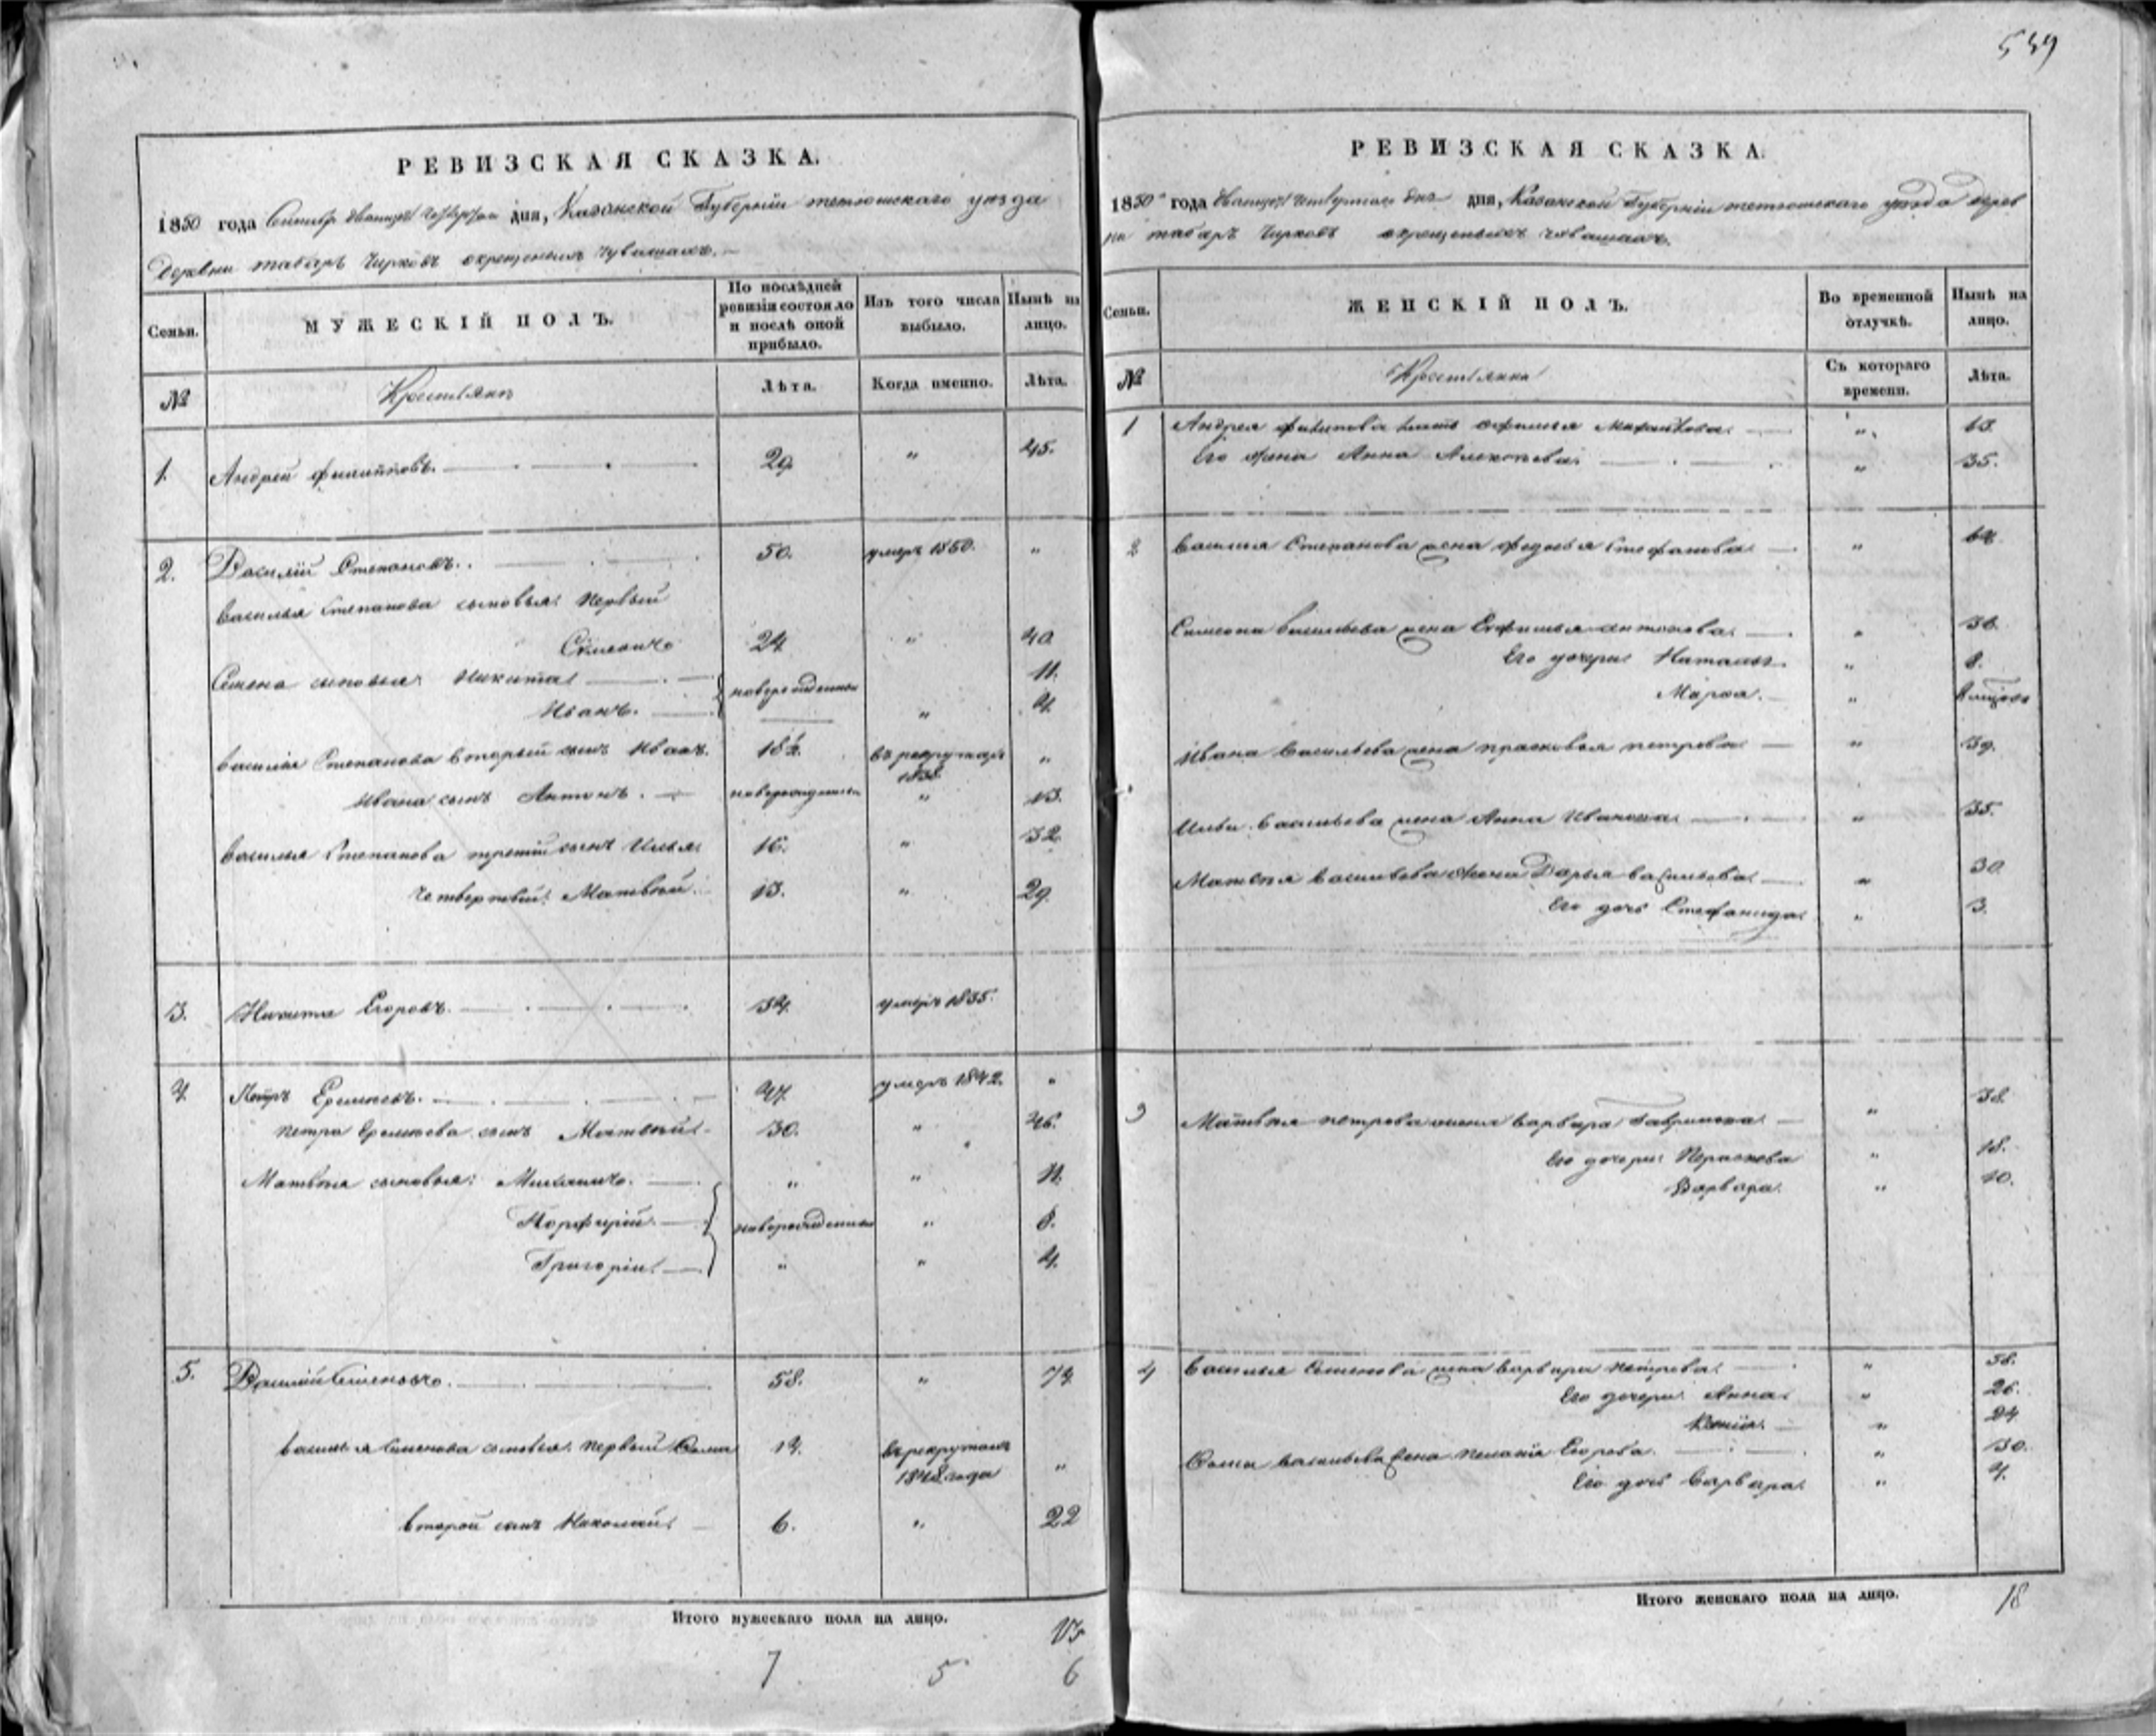 539
РЕВИЗСКАЯ СКАЗКА.
1850 года Сентябр дватцеть четвертаго дня, Казанской Губернии тетюшскаго уезда
Деревни табарь Чирковъ окрещеныхъ чувашахъ.
Семьи.
МУЖЕСКІЙ ПОЛЪ.
По послѣдней ревизіи состояло и послѣ оной прибыло.
Изъ того числа выбыло.
Нынѣ на лицо.
№
Крестьянъ
Лѣта.
Когда именно.
Лѣта.
1. Андрей филипповъ. 29 " 45.
2. Василій Степановъ. 50. умеръ 1850. "
Василья Степанова сыновья: первый
Семенъ 24 " 40
Семена сыновья: Никита 11.
новорожденны
Иванъ. " 4.
Василья Степанова вторый сынъ Иванъ. 18½. въ рекрутахъ "
1838.
Ивана сынъ Антонъ. новорожденны " 13.
Василья Степанова третій сынъ Илья 16. " 32.
четвертый: Матвей. 13. " 29
3. Никита Егоровъ. 54. умеръ 1835.
4. Петръ Еремеевъ. 47. умеръ 1842. "
петра Еремеева сынъ Матвей 30. " 46.
Матвея сыновья: " " 11.
Порфирій новорожденны " 8.
Григоріи " " 4.
5. Василій Семеновъ. 58. " 74
Василья Семенова сыновья: первый Фома 14. въ рекрутахъ
1848 года "
второй сынъ Николай 6. " 22
Итого мужескаго пола на лицо.
7 5 6
РЕВИЗСКАЯ СКАЗКА.
1850 года дватцеть четвертаго дня, Казанской Губерніи тетюшскаго уезда дерев
ни табарь Чирковъ окрещеныхъ чувашахъ.
Семьи.
ЖЕНСКІЙ ПОЛЪ.
Во временной отлучкѣ.
Нынѣ на лицо.
№
Крестьянки
Съ котораго времени.
Лѣта.
1 Андрея филипова мать "
Его жена Анна Алексеева " 35.
2 Василья Степанова жена федосья Стефанова "
Семена Васильева жена Ефимья антонова " 36.
Его дочери: Наталья " 8.
Марфа. "
Ивана Васильева жена прасковья петрова " 39.
Ильи Васильева жена Анна Иванова " 35.
Матвея Васильева жена Дарья Васильева " 30
Его дочь Стефанида " 3.
3 Матвея петрова жена Варвара Гаврилова " 38.
Его дочери: Праскева " 18.
Варвара. " 10.
4 Василья Семенова жена Варвара Петрова " 58.
Его дочери: Анна " 26.
Ксенія " 24
Фомы Васильева жена Пелагія Егорова. " 30.
Его дочь Варвара " 4.
Итого женскаго пола на лицо. 18